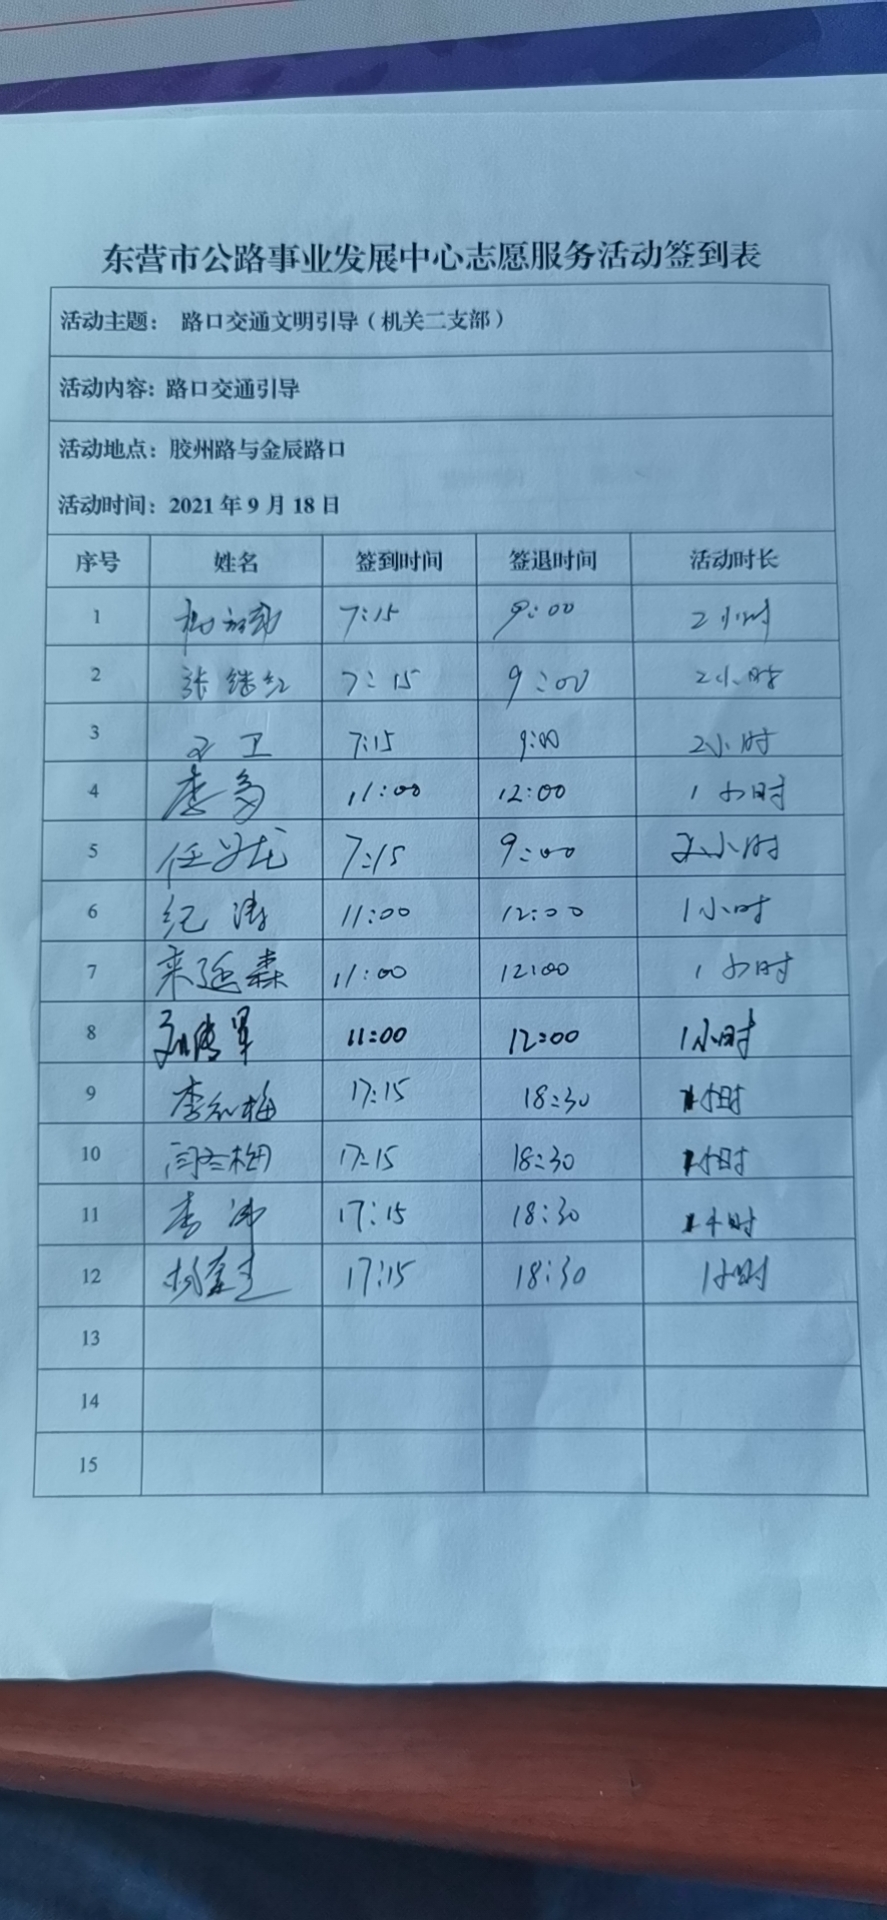 东营市公路事业发展中心志愿服务活动签到表
活动主题： 路口交通文明引导（机关二支部）
活动内容: 路口交通引导
活动地点：胶州路与金辰路口
活动时间：2021 年 9 月 18 日
序号 姓名 签到时间 签退时间 活动时长
1 7:15 9:00 2小时
2 张继红 7:15 9:00 2小时
3 卫 7:15 9:00 2小时
4 李 11:00 12:00 1小时
5 任 龙 7:15 9:00 2小时
6 纪涛 11:00 12:00 1小时
7 来延森 11:00 12:00 1小时
8 军 11:00 12:00 1小时
9 李 梅 17:15 18:30 1小时
10 闫冬梅 17:15 18:30 1小时
11 李 17:15 18:30 1小时
12 杨 17:15 18:30 1小时
13
14
15